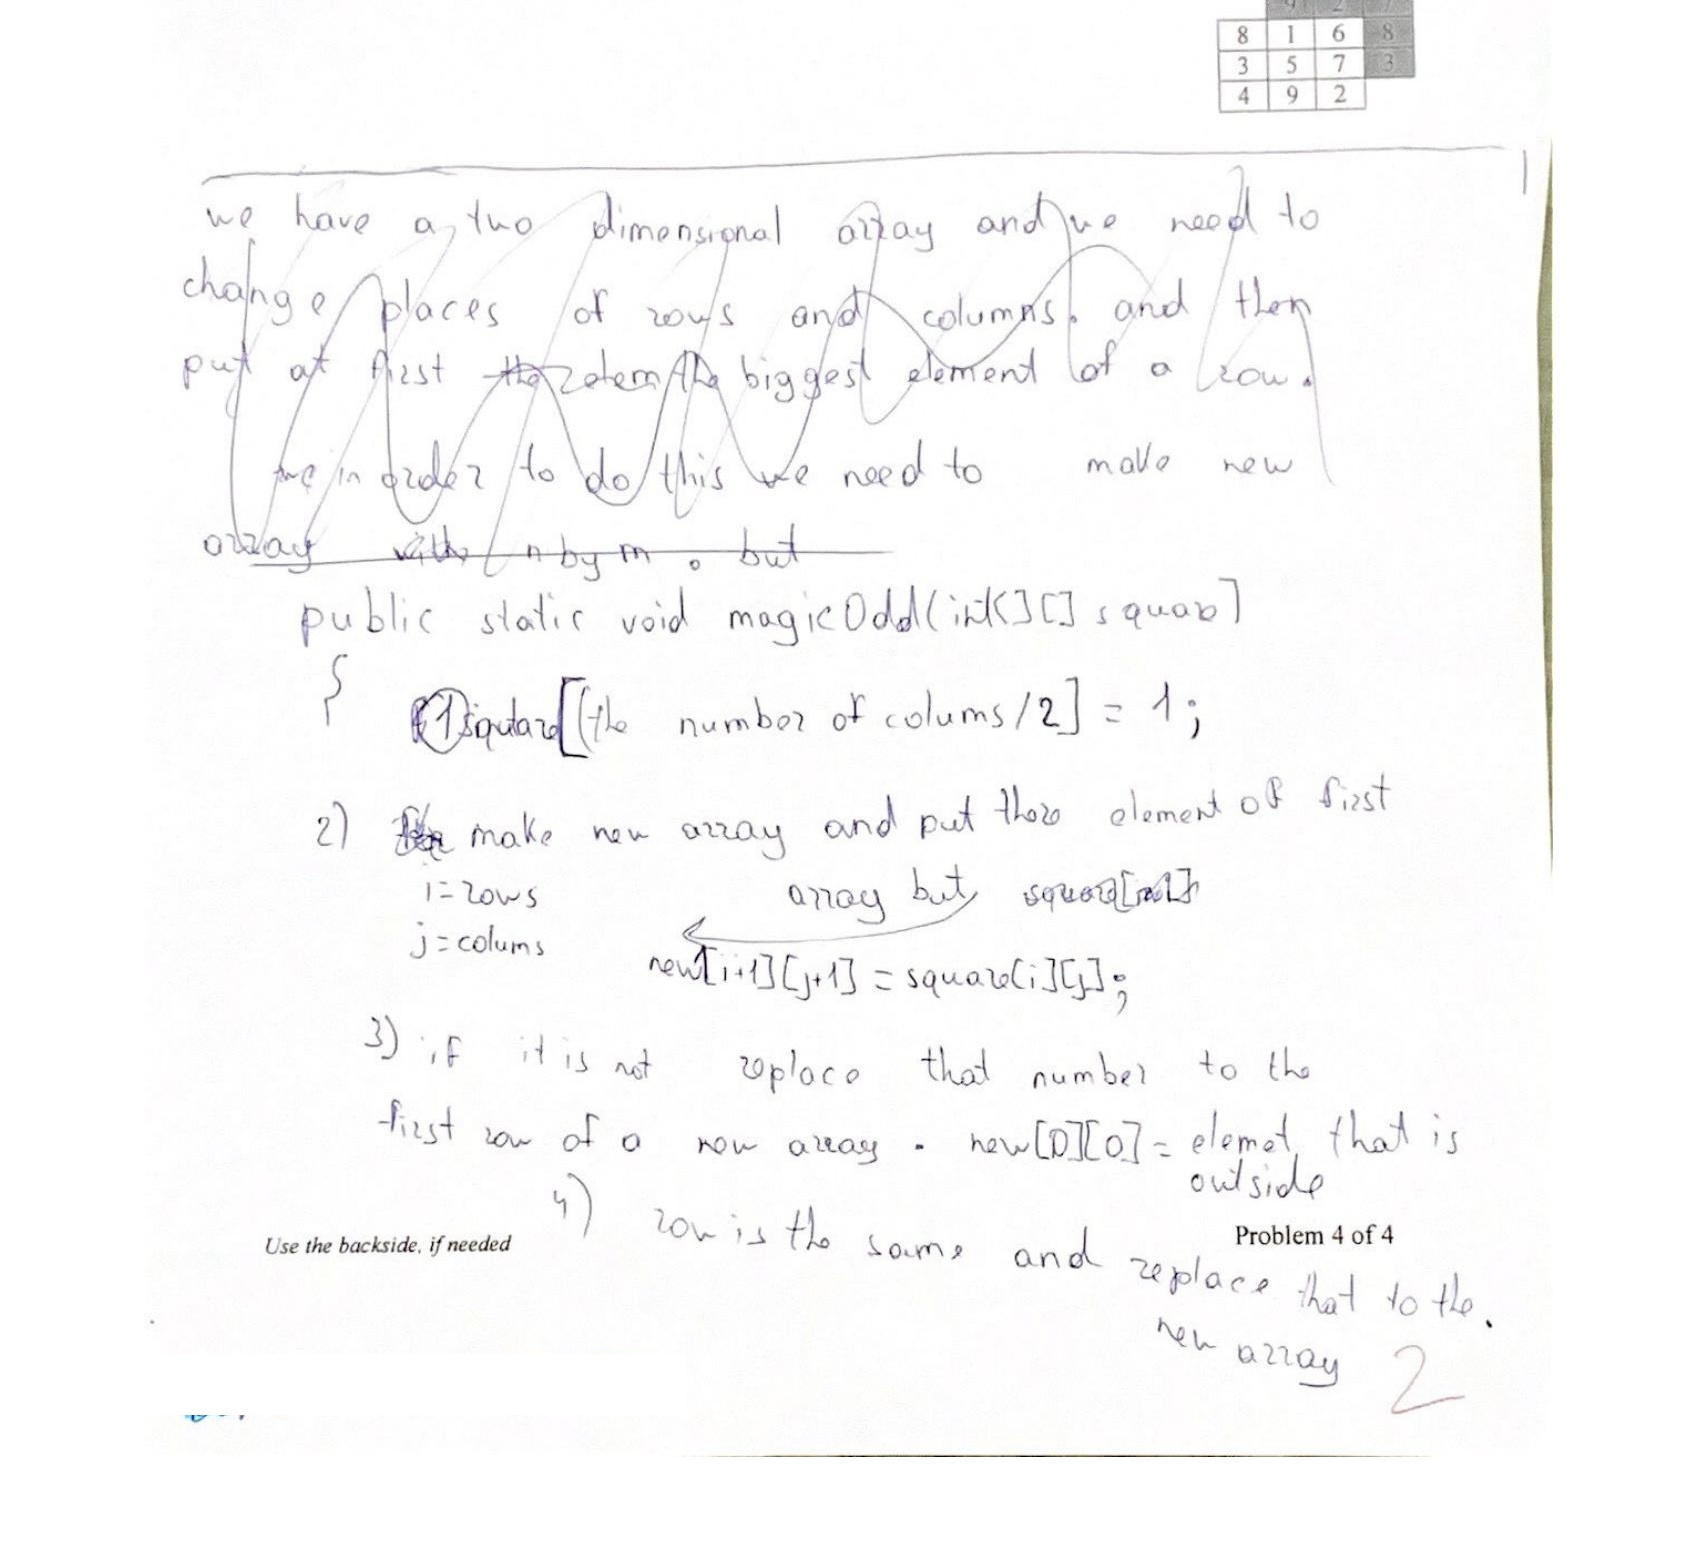 9 2 7
8 1 6 8
3 5 7 3
4 9 2
we have a two dimensional array and we need to
change places of rows and columns. and then
put at first the biggest element of a row.
in order to do this we need to make new
array with n by m. but
public static void magicOdd(int[][] square]
{
1) square[(the number of colums/2] = 1;
2) make new array and put there element of first
i=rows array but
j=colums
new[i+1][j+1] = square[i][j];
3) if it is not replace that number to the
first row of a new array. new[0][0] = elemet that is
outside
4) row is the same and replace that to the.
new array
Use the backside, if needed
Problem 4 of 4
2